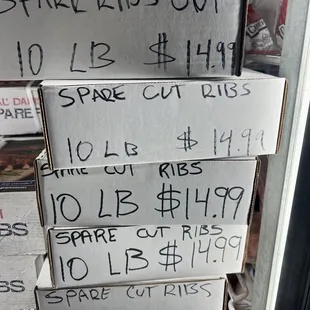 SPARE RIBS CUT
10 LB $14.99
SPARE CUT RIBS
10 LB $14.99
SPARE CUT RIBS
10 LB $14.99
SPARE CUT RIBS
10 LB $14.99
SPARE CUT RIBS